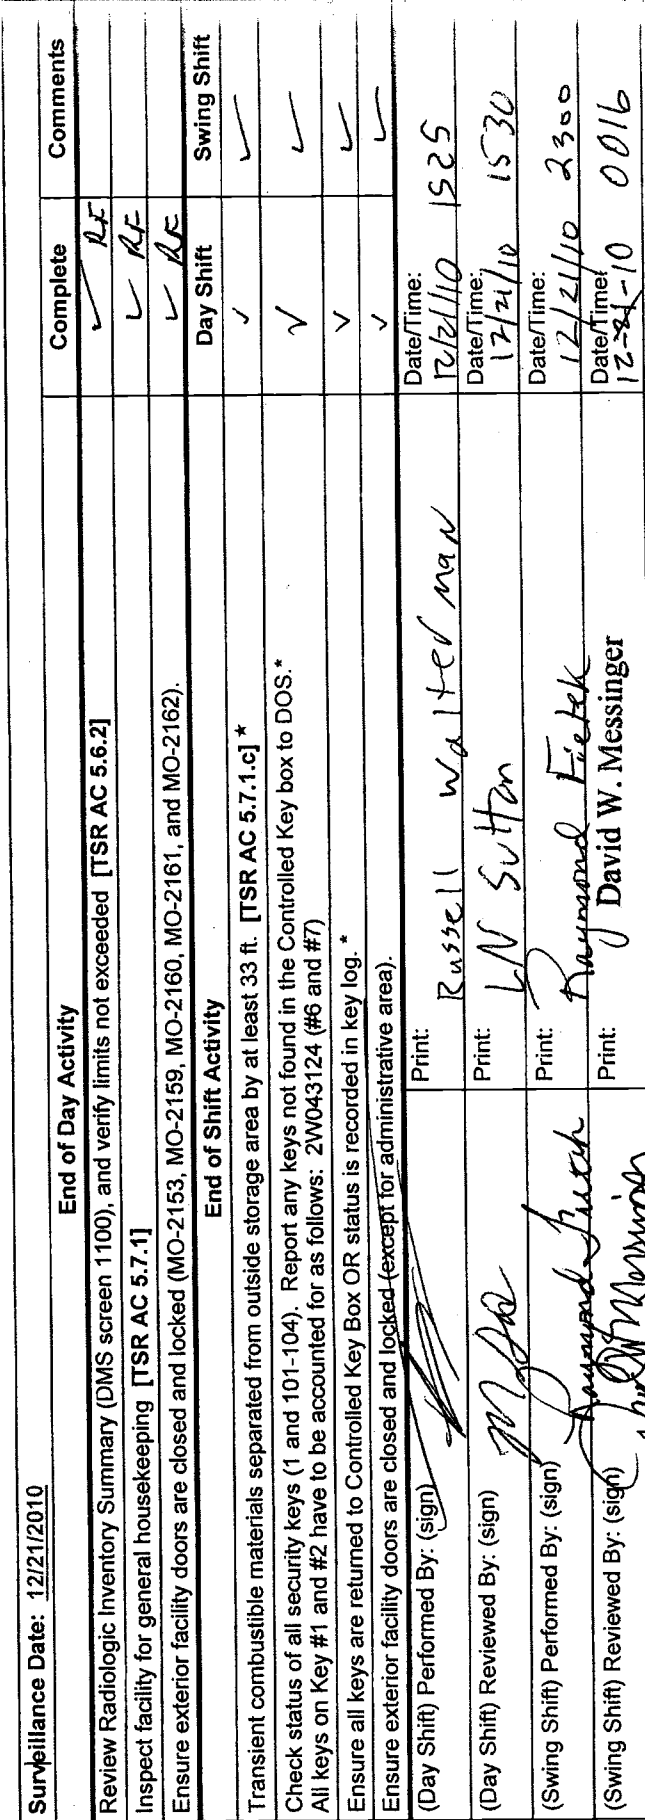 Surveillance Date: 12/21/2010
End of Day Activity Complete Comments
Review Radiologic Inventory Summary (DMS screen 1100), and verify limits not exceeded [TSR AC 5.6.2] ✓ RF
Inspect facility for general housekeeping [TSR AC 5.7.1] ✓ RF
Ensure exterior facility doors are closed and locked (MO-2153, MO-2159, MO-2160, MO-2161, and MO-2162). ✓ RF
End of Shift Activity Day Shift Swing Shift
Transient combustible materials separated from outside storage area by at least 33 ft. [TSR AC 5.7.1.c] * ✓ ✓
Check status of all security keys (1 and 101-104). Report any keys not found in the Controlled Key box to DOS.* ✓ ✓
All keys on Key #1 and #2 have to be accounted for as follows: 2W043124 (#6 and #7)
Ensure all keys are returned to Controlled Key Box OR status is recorded in key log. * ✓ ✓
Ensure exterior facility doors are closed and locked (except for administrative area). ✓ ✓
(Day Shift) Performed By: (sign) Print: Russell Walterman Date/Time: 12/21/10 1525
(Day Shift) Reviewed By: (sign) Print: LN Sutton Date/Time: 12/21/10 1530
(Swing Shift) Performed By: (sign) Raymond Fietek Print: Raymond Fietek Date/Time: 12/21/10 2300
(Swing Shift) Reviewed By: (sign) Print: David W. Messinger Date/Time: 12-21-10 0016